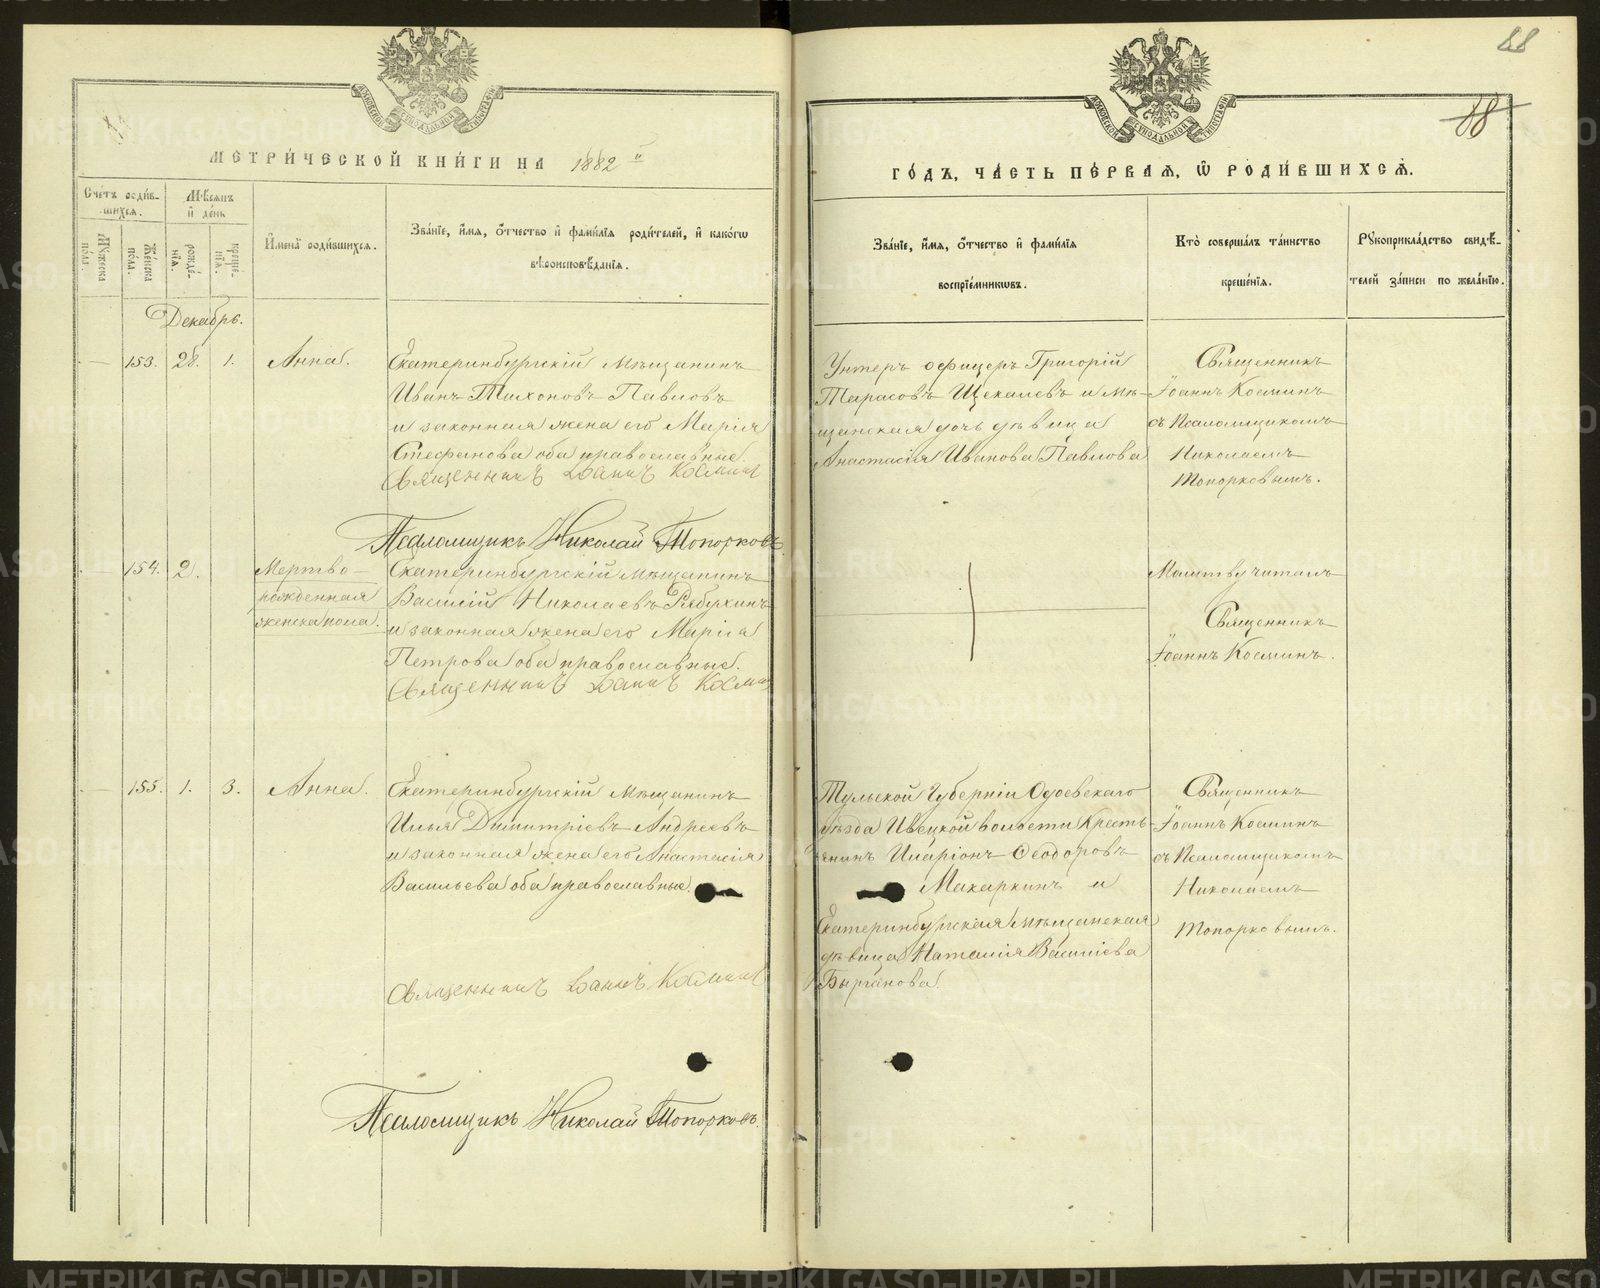 88
88
МОСКОВСКОЙ СѴНОДАЛЬНОЙ ТИПОГРАФІИ
МОСКОВСКОЙ СѴНОДАЛЬНОЙ ТИПОГРАФІИ
МЕТРИ́ЧЕСКОЙ КНИ́ГИ НА 1882 й
ГО́ДЪ, ЧА́СТЬ ПЕ́РВАЯ, Ѡ РОДИ́ВШИХСЯ.
Сче́тъ роди́в-
шихся.
Му́жеска по́ла.
Же́нска по́ла.
Мѣ́сяцъ и де́нь
рожде́-
нїя.
креще́-
нїя.
Имена̀ роди́вшихся.
Зва́нїе, и́мя, о́тчество и фами́лїя роди́телей, и како́гѡ
вѣроисповѣ́данїя.
Зва́нїе, и́мя, о́тчество и фами́лїя
воспрїе́мникѡвъ.
Кто̀ соверша́лъ та́инство
креще́нїя.
Рꙋкоприкла́дство свидѣ́-
телей за́писи по жела́нїю.
Декабрь.
— 153. 28. 1. Анна.
Екатеринбургскій мѣщанинъ
Иванъ Тихоновъ Павловъ
и законная жена его Марія
Стефанова оба православные.
Священникъ Іоаннъ Косминъ
Псаломщикъ Николай Топорковъ
Унтеръ офицеръ Григорій
Тарасовъ Щекалевъ и мѣ-
щанская дочь дѣвица
Анастасія Иванова Павлова
Священникъ
Іоаннъ Косминъ
съ Псаломщикомъ
Николаемъ
Топорковымъ.
— 154. 2. Мертво-
рожденная
женска пола.
Екатеринбургскій мѣщанинъ
Василій Николаевъ Рябухинъ
и законная жена его Марія
Петрова оба православные.
Священникъ Іоаннъ Косминъ
Молитву читалъ
Священникъ
Іоаннъ Косминъ.
— 155. 1. 3. Анна.
Екатеринбургскій мѣщанинъ
Илья Димитріевъ Андреевъ
и законная жена его Анастасія
Васильева оба православные.
Священникъ Іоаннъ Косминъ
Псаломщикъ Николай Топорковъ.
Тульской Губерніи Одоевскаго
уѣзда Ивецкой волости Кресть-
янинъ Иларіонъ Ѳеодоровъ
Макаркинъ и
Екатеринбургская мѣщанская
дѣвица Наталія Василіева
Бырганова.
Священникъ
Іоаннъ Косминъ
съ Псаломщикомъ
Николаемъ
Топорковымъ.
METRIKI.GASO-URAL.RU